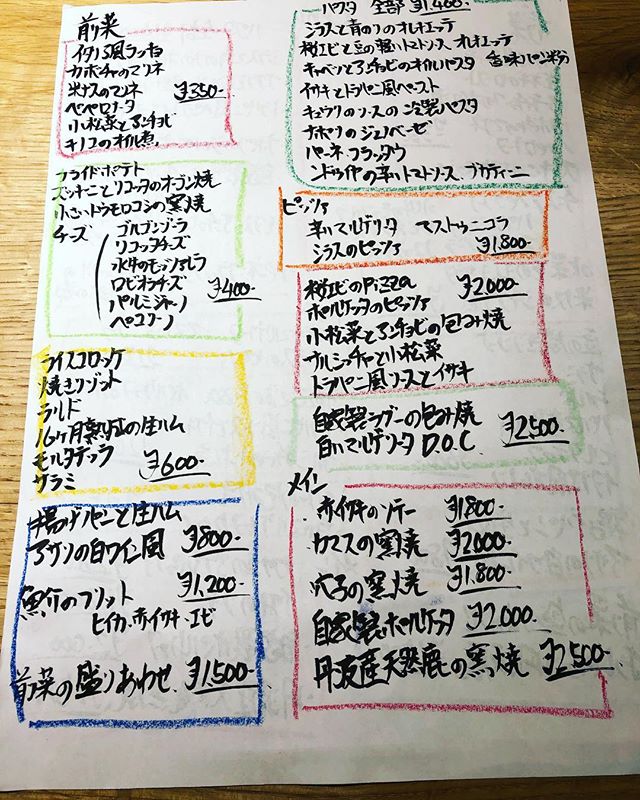 前菜
イタリア風ラッキョ
カボチャのマリネ
米ナスのマリネ ¥350-
ペペロナータ
小松菜とアンチョビ
キノコのオイル煮
フライドポテト
ズッキーニとリコッタのオーブン焼
小さいトウモロコシの窯焼
チーズ ゴルゴンゾーラ
リコッタチーズ
水牛のモッツァレラ
ロビオラチーズ
パルミジャーノ ¥400-
ペコリーノ
ライスコロッケ
焼きリゾット
ラルド
16ヶ月熟成の生ハム
モルタデッラ ¥600-
サラミ
揚げパンと生ハム
アサリの白ワイン風 ¥800-
魚介のフリット ¥1,200-
ヒイカ・赤イサキ・エビ
前菜の盛りあわせ ¥1,500-
パスタ 全部 ¥1,400-
シラスと青のりのオレキエッテ
桜エビと豆の軽いトマトソース オレキエッテ
キャベツとアンチョビのオイルパスタ 香味パン粉
イサキとトラパニ風ペースト
キュウリのソースの冷製パスタ
ナポリのジェノベーゼ
パーネ・フラッタウ
ンドゥイヤの辛いトマトソース ブカティーニ
ピッツァ
辛いマルゲリータ マストゥニコラ
シラスのピッツァ ¥1,800-
桜エビのPizza ¥2,000-
ポルケッタのピッツァ
小松菜とアンチョビの包み焼
サルシッチャと小松菜
トラパニ風ソースとイサキ
自家製ラグーの包み焼 ¥2,500-
白いマルゲリータ D.O.C
メイン
赤イサキのソテー ¥1,800-
カマスの窯焼 ¥2,000-
穴子の窯焼 ¥1,800-
自家製ポルケッタ ¥2,000-
丹波産天然鹿の窯焼 ¥2,500-